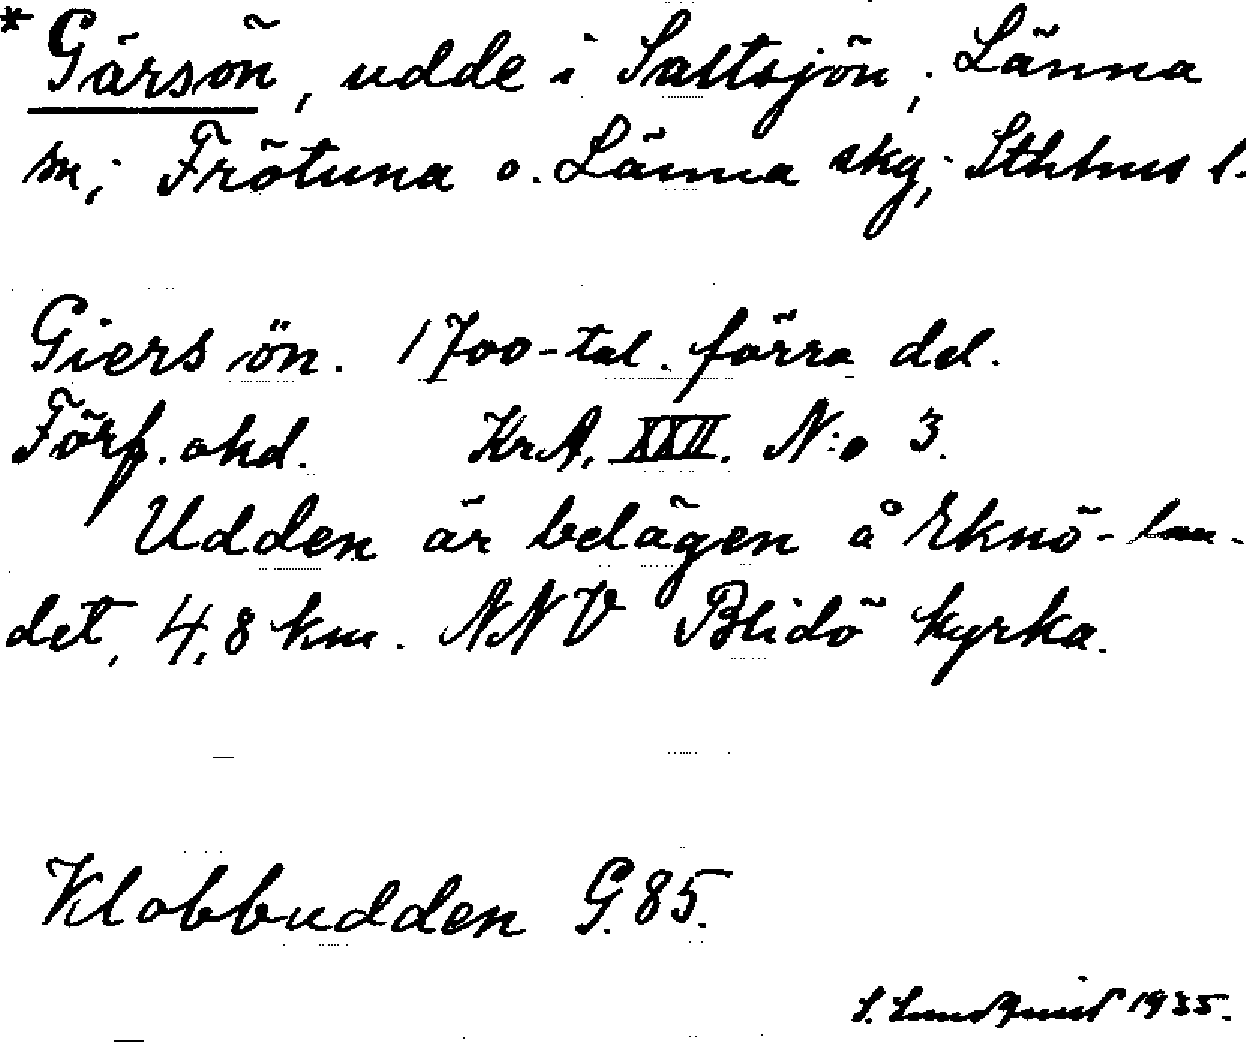 * Gärsön, udde i Saltsjön, Länna
sn; Frötuna o. Länna skg; Sthlms l.
Giers ön. 1700-tal. förra del.
Förf. okd. KrA, XXII. N:o 3.
Udden är belägen å Eknö-lan-
det, 4,8 km. NNV Blidö kyrka.
Klobbudden G.85.
S. Lundquist 1935.